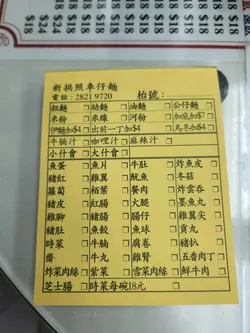 新拱照車仔麵
電話：2821 9720 枱號：
粗麵 幼麵 油麵 公仔麵
米粉 米線 河粉 加底加$7
伊麵加$4 出前一丁加$4 烏冬加$4
牛腩汁 咖哩汁 麻辣汁
小什會 大什會
魚蛋 魚片 牛肚 炸魚皮
豬紅 雞翼 魷魚 冬菇
蘿蔔 栢葉 餐肉 炸雲吞
豬皮 紅腸 大腿 墨魚丸
雞腳 豬腸 腸仔 雞翼尖
豬肚 魚餃 魚球 貢丸
時菜 牛腩 腐卷 豬扒
齋 牛丸 雞腎 五香肉丁
炸菜肉絲 紫菜 雪菜肉絲 鮮牛肉
芝士腸 時菜每碗18元
$18
$18
$18
$18
$18
$18
$18